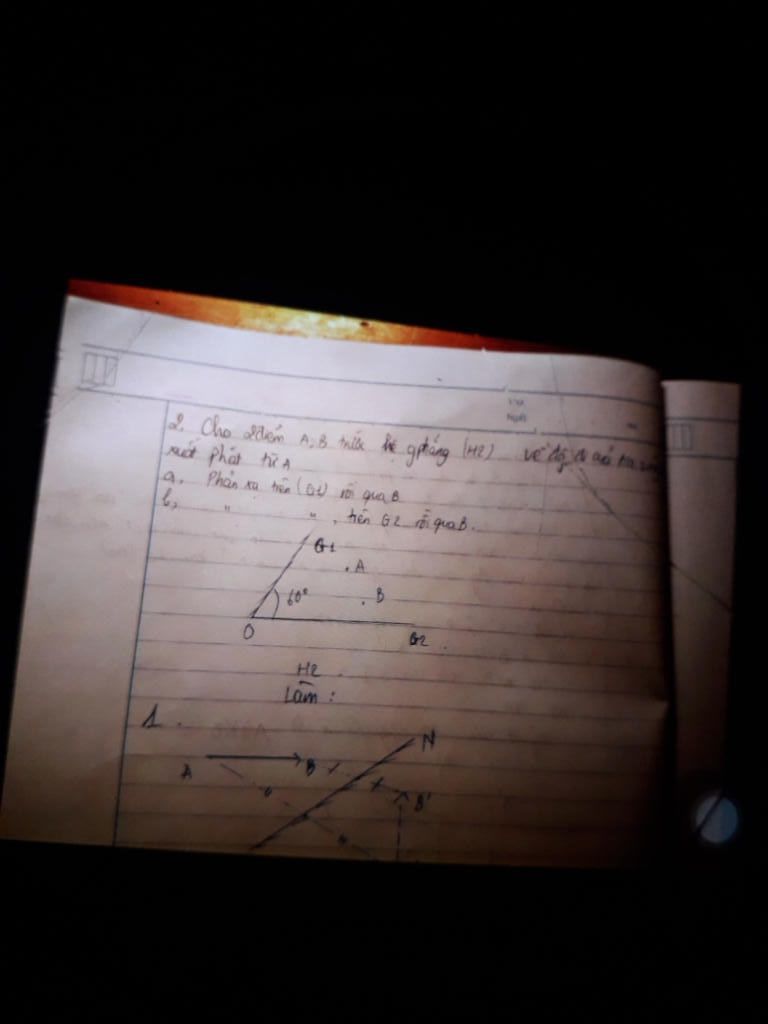 2. Cho 2 điểm A, B trước hệ gphẳng (H2) vẽ đg đi của tia
xuất phát từ A
a, Phản xạ trên (G1) rồi qua B
b, " " , trên G2 rồi qua B.
G1
A
60°
B
O
G2
H2
Làm :
1.
N
A B
B'